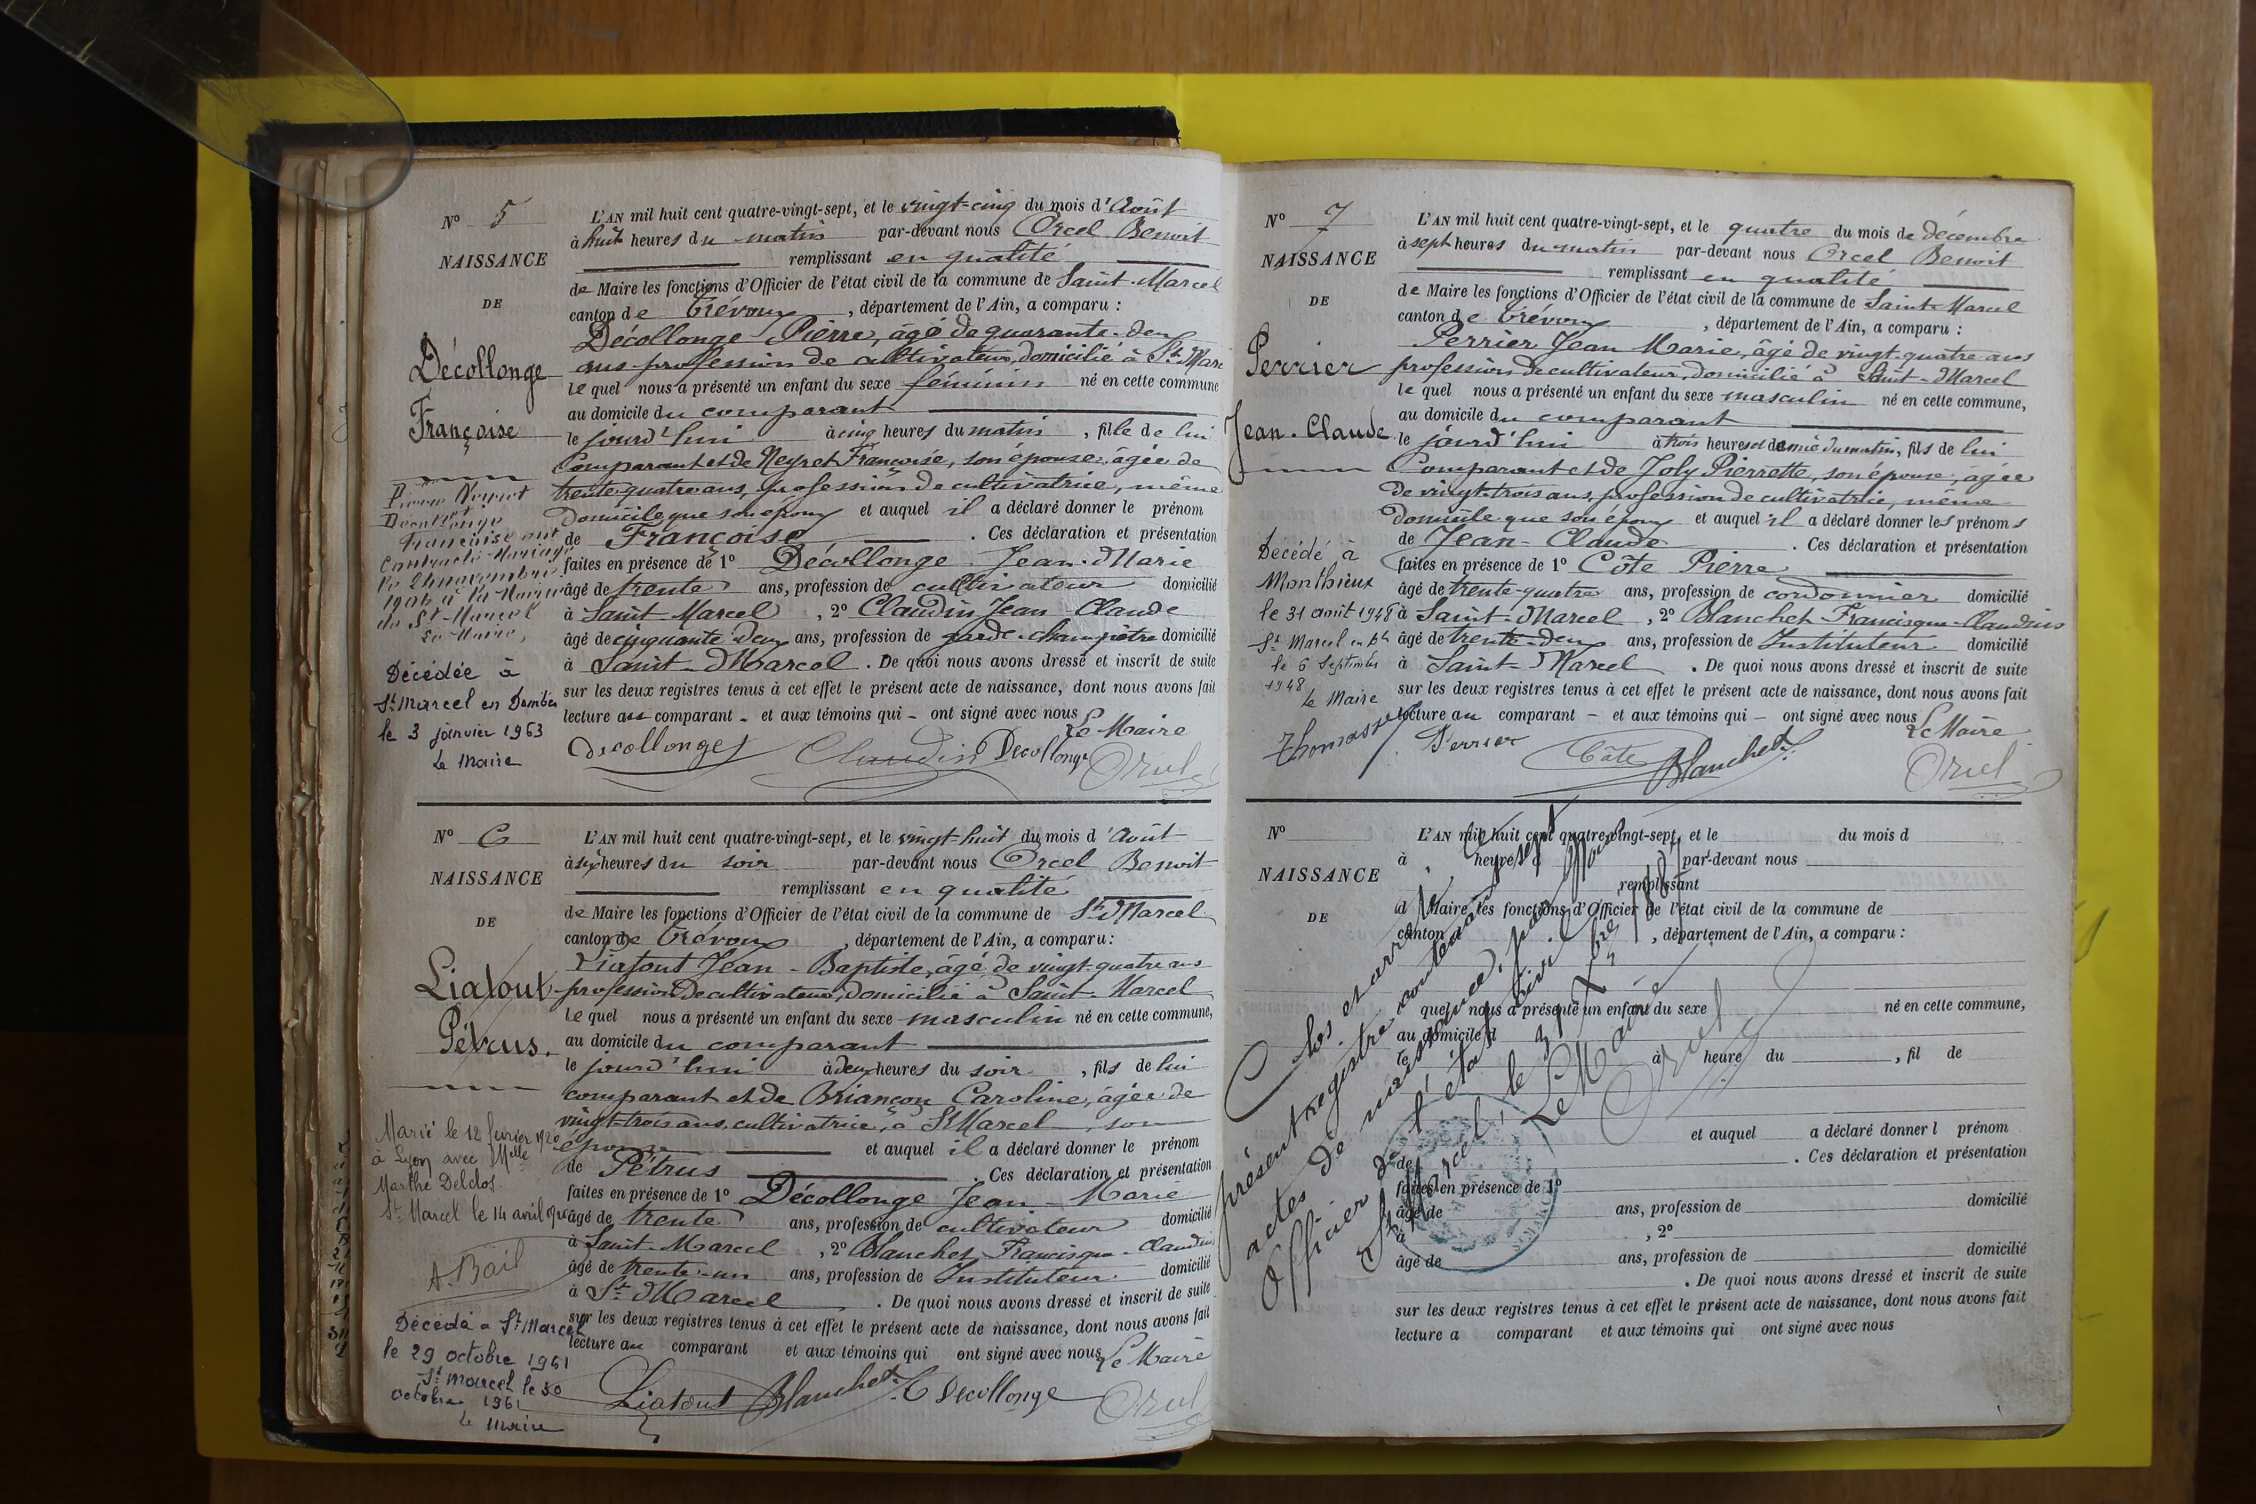 N° 5
NAISSANCE
DE
Décollonge
Françoise
L'AN mil huit cent quatre-vingt-sept, et le vingt-cinq du mois d'Août
à huit heures du matin par-devant nous Orcel Benoit
remplissant en qualité
de Maire les fonctions d'Officier de l'état civil de la commune de Saint-Marcel
canton de Trévoux, département de l'Ain, a comparu :
Décollonge Pierre, âgé de quarante-deux
ans profession de cultivateur, domicilié à St Marcel
lequel nous a présenté un enfant du sexe féminin né en cette commune
au domicile du comparant
le jourd'hui à cinq heures du matin, fille de lui
Comparant et de Neyret Françoise, son épouse, âgée de
trente-quatre ans, profession de cultivatrice, même
domicile que son époux et auquel il a déclaré donner le prénom
de Françoise. Ces déclaration et présentation
faites en présence de 1° Décollonge Jean-Marie
âgé de trente ans, profession de cultivateur domicilié
à Saint-Marcel, 2° Claudin Jean-Claude
âgé de cinquante deux ans, profession de garde-champêtre domicilié
à Saint-Marcel. De quoi nous avons dressé et inscrit de suite
sur les deux registres tenus à cet effet le présent acte de naissance, dont nous avons fait
lecture au comparant - et aux témoins qui - ont signé avec nous
Le Maire
Decollonge Claudin Decollonge Orcel
Décollonge
Françoise ont
contracté mariage
le novembre
à la Mairie
de St Marcel
Le Maire,
Décédée à
St Marcel en Dombes
le 3 janvier 1963
Le Maire
N° 6
NAISSANCE
DE
Liatout
Pétrus.
L'AN mil huit cent quatre-vingt-sept, et le vingt-huit du mois d'Août
à six heures du soir par-devant nous Orcel Benoit
remplissant en qualité
de Maire les fonctions d'Officier de l'état civil de la commune de St Marcel
canton de Trévoux, département de l'Ain, a comparu :
Liatout Jean-Baptiste, âgé de vingt-quatre ans
profession de cultivateur, domicilié à Saint-Marcel
lequel nous a présenté un enfant du sexe masculin né en cette commune,
au domicile du comparant
le jourd'hui à deux heures du soir, fils de lui
comparant et de Briançon Caroline, âgée de
vingt-trois ans, cultivatrice, à St Marcel, son
épouse et auquel il a déclaré donner le prénom
de Pétrus. Ces déclaration et présentation
faites en présence de 1° Décollonge Jean-Marie
âgé de trente ans, profession de cultivateur domicilié
à Saint-Marcel, 2° Blanchet Francisque-Claudius
âgé de trente-un ans, profession de Instituteur domicilié
à St Marcel. De quoi nous avons dressé et inscrit de suite
sur les deux registres tenus à cet effet le présent acte de naissance, dont nous avons fait
lecture au comparant et aux témoins qui ont signé avec nous
Le Maire
Liatout Blanchet Decollonge Orcel
Marié le 12 février 1920
à Lyon avec Melle
Marthe Delclos.
St Marcel le 14 avril 1920
A. Bail
Décédé à St Marcel
le 29 octobre 1961
St Marcel le 30
octobre 1961
Le Maire
N° 7
NAISSANCE
DE
Perrier
Jean-Claude
L'AN mil huit cent quatre-vingt-sept, et le quatre du mois de décembre
à sept heures du matin par-devant nous Orcel Benoit
remplissant en qualité
de Maire les fonctions d'Officier de l'état civil de la commune de Saint-Marcel
canton de Trévoux, département de l'Ain, a comparu :
Perrier Jean Marie, âgé de vingt-quatre ans
profession de cultivateur, domicilié à Saint-Marcel
lequel nous a présenté un enfant du sexe masculin né en cette commune,
au domicile du comparant
le jourd'hui à trois heures et demie du matin, fils de lui
Comparant et de Joly Pierrette, son épouse, âgée
de vingt-trois ans, profession de cultivatrice, même
domicile que son époux et auquel il a déclaré donner les prénoms
de Jean-Claude. Ces déclaration et présentation
faites en présence de 1° Côte Pierre
âgé de trente-quatre ans, profession de cordonnier domicilié
à Saint-Marcel, 2° Blanchet Francisque-Claudius
âgé de trente-deux ans, profession de Instituteur domicilié
à Saint-Marcel. De quoi nous avons dressé et inscrit de suite
sur les deux registres tenus à cet effet le présent acte de naissance, dont nous avons fait
lecture au comparant - et aux témoins qui - ont signé avec nous
Le Maire
Perrier Côte Blanchet Orcel
Décédé à
Monthieux
le 31 août 1948
St Marcel en Des
le 6 Septembre
1948
Le Maire
N°
NAISSANCE
DE
L'AN mil huit cent quatre-vingt-sept, et le du mois d
à heure par-devant nous
remplissant
d Maire les fonctions d'Officier de l'état civil de la commune de
canton , département de l'Ain, a comparu :
quel nous a présenté un enfant du sexe né en cette commune,
au domicile d
le à heure du , fil de
et auquel a déclaré donner l prénom
de . Ces déclaration et présentation
faites en présence de 1°
âgé de ans, profession de domicilié
à , 2°
âgé de ans, profession de domicilié
. De quoi nous avons dressé et inscrit de suite
sur les deux registres tenus à cet effet le présent acte de naissance, dont nous avons fait
lecture a comparant et aux témoins qui ont signé avec nous
Clos et arrêté le
présent registre contenant sept
actes de naissance, par nous
Officier de l'état civil
St Marcel, le 31 Xbre 1887
Le Maire
Orcel